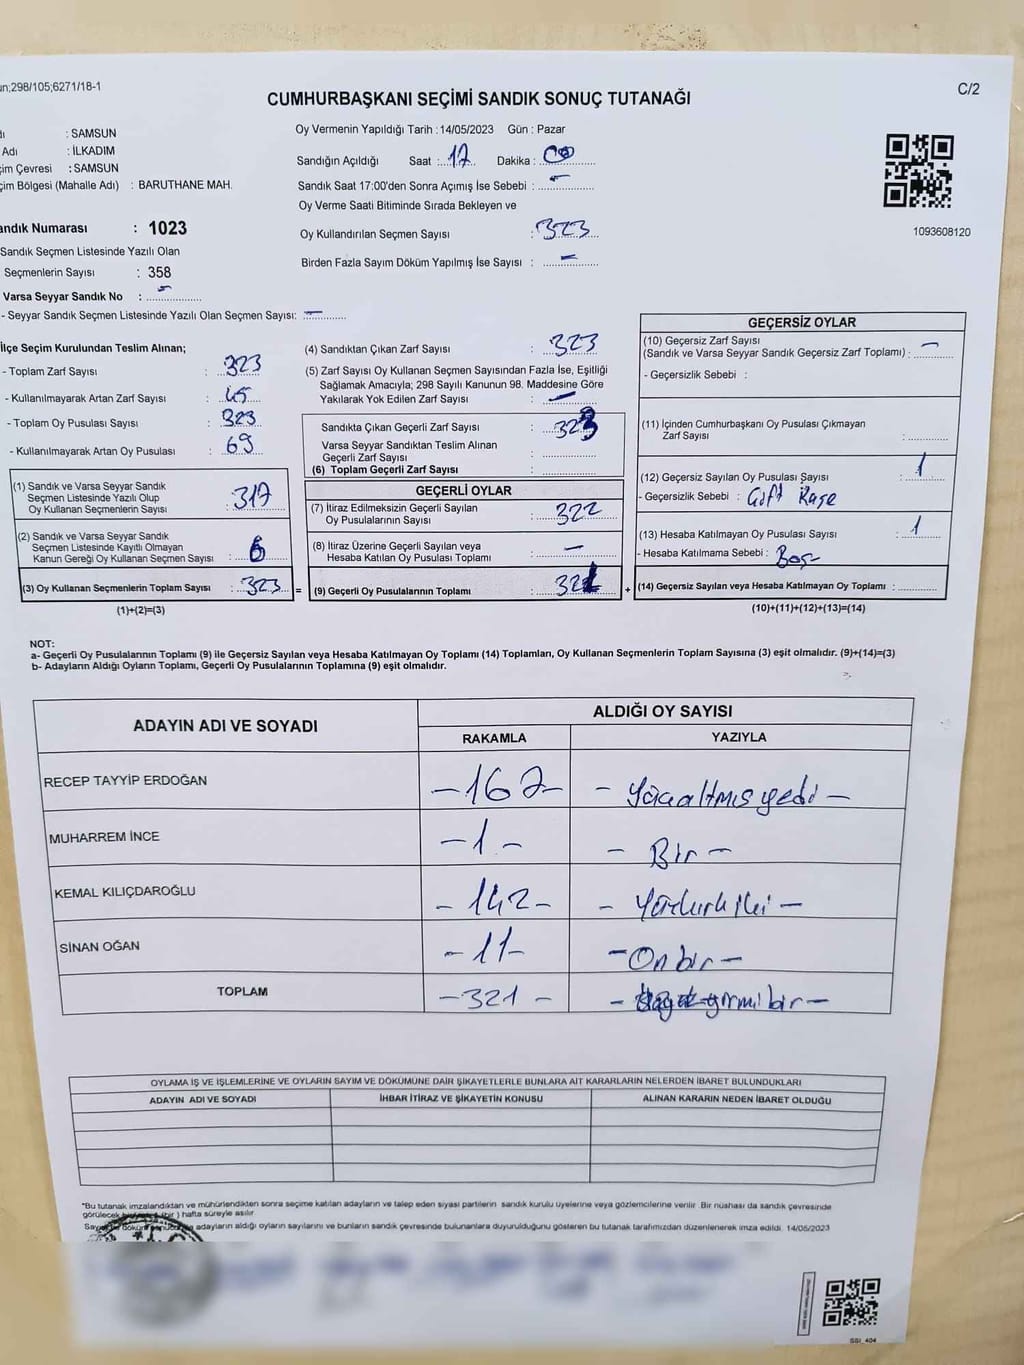 un;298/105;6271/18-1
C/2
CUMHURBAŞKANI SEÇİMİ SANDIK SONUÇ TUTANAĞI
dı : SAMSUN
Adı : İLKADIM
çim Çevresi : SAMSUN
çim Bölgesi (Mahalle Adı) : BARUTHANE MAH.
andık Numarası : 1023
Sandık Seçmen Listesinde Yazılı Olan
Seçmenlerin Sayısı : 358
Varsa Seyyar Sandık No : -
- Seyyar Sandık Seçmen Listesinde Yazılı Olan Seçmen Sayısı: -
Oy Vermenin Yapıldığı Tarih : 14/05/2023 Gün : Pazar
Sandığın Açıldığı Saat : 17 Dakika : 00
Sandık Saat 17:00'den Sonra Açımış İse Sebebi : -
Oy Verme Saati Bitiminde Sırada Bekleyen ve
Oy Kullandırılan Seçmen Sayısı : 323
Birden Fazla Sayım Döküm Yapılmış İse Sayısı : -
1093608120
İlçe Seçim Kurulundan Teslim Alınan;
- Toplam Zarf Sayısı : 323
- Kullanılmayarak Artan Zarf Sayısı : 45
- Toplam Oy Pusulası Sayısı : 323
- Kullanılmayarak Artan Oy Pusulası : 69
(1) Sandık ve Varsa Seyyar Sandık
Seçmen Listesinde Yazılı Olup
Oy Kullanan Seçmenlerin Sayısı : 317
(2) Sandık ve Varsa Seyyar Sandık
Seçmen Listesinde Kayıtlı Olmayan
Kanun Gereği Oy Kullanan Seçmen Sayısı : 6
(3) Oy Kullanan Seçmenlerin Toplam Sayısı : 323 =
(1)+(2)=(3)
(4) Sandıktan Çıkan Zarf Sayısı : 323
(5) Zarf Sayısı Oy Kullanan Seçmen Sayısından Fazla İse, Eşitliği
Sağlamak Amacıyla; 298 Sayılı Kanunun 98. Maddesine Göre
Yakılarak Yok Edilen Zarf Sayısı : -
Sandıkta Çıkan Geçerli Zarf Sayısı : 323
Varsa Seyyar Sandıktan Teslim Alınan
Geçerli Zarf Sayısı :
(6) Toplam Geçerli Zarf Sayısı :
GEÇERLİ OYLAR
(7) İtiraz Edilmeksizin Geçerli Sayılan
Oy Pusulalarının Sayısı : 322
(8) İtiraz Üzerine Geçerli Sayılan veya
Hesaba Katılan Oy Pusulası Toplamı : -
(9) Geçerli Oy Pusulalarının Toplamı : 321 +
GEÇERSİZ OYLAR
(10) Geçersiz Zarf Sayısı
(Sandık ve Varsa Seyyar Sandık Geçersiz Zarf Toplamı) : -
- Geçersizlik Sebebi :
(11) İçinden Cumhurbaşkanı Oy Pusulası Çıkmayan
Zarf Sayısı :
(12) Geçersiz Sayılan Oy Pusulası Sayısı : 1
- Geçersizlik Sebebi : Çift Kaşe
(13) Hesaba Katılmayan Oy Pusulası Sayısı : 1
- Hesaba Katılmama Sebebi : Boş
(14) Geçersiz Sayılan veya Hesaba Katılmayan Oy Toplamı :
(10)+(11)+(12)+(13)=(14)
NOT:
a- Geçerli Oy Pusulalarının Toplamı (9) ile Geçersiz Sayılan veya Hesaba Katılmayan Oy Toplamı (14) Toplamları, Oy Kullanan Seçmenlerin Toplam Sayısına (3) eşit olmalıdır. (9)+(14)=(3)
b- Adayların Aldığı Oyların Toplamı, Geçerli Oy Pusulalarının Toplamına (9) eşit olmalıdır.
ADAYIN ADI VE SOYADI
ALDIĞI OY SAYISI
RAKAMLA YAZIYLA
RECEP TAYYİP ERDOĞAN -167- - Yüzaltmışyedi -
MUHARREM İNCE -1- - Bir -
KEMAL KILIÇDAROĞLU -142- - Yüzkırkiki -
SİNAN OĞAN -11- - Onbir -
TOPLAM -321- yirmibir -
OYLAMA İŞ VE İŞLEMLERİNE VE OYLARIN SAYIM VE DÖKÜMÜNE DAİR ŞİKAYETLERLE BUNLARA AİT KARARLARIN NELERDEN İBARET BULUNDUKLARI
ADAYIN ADI VE SOYADI İHBAR İTİRAZ VE ŞİKAYETİN KONUSU ALINAN KARARIN NEDEN İBARET OLDUĞU
*Bu tutanak imzalandıktan ve mühürlendikten sonra seçime katılan adayların ve talep eden siyasi partilerin sandık kurulu üyelerine veya gözlemcilerine verilir. Bir nüshası da sandık çevresinde
görülecek bir yere (bir) hafta süreyle asılır
adayların aldığı oyların sayılarını ve bunların sandık çevresinde bulunanlara duyurulduğunu gösteren bu tutanak tarafımızdan düzenlenerek imza edildi. 14/05/2023
SSI_404